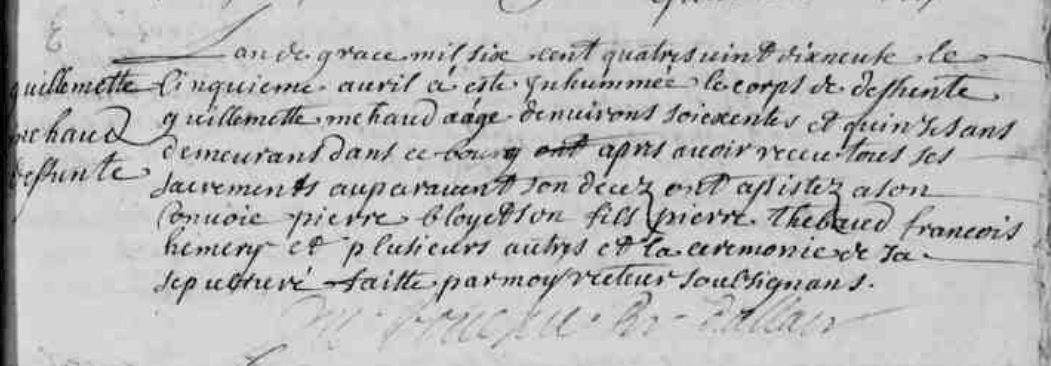 guillemette
mehaud
deffunte
Lan de grace mil six cent quatre uint dixneufe le
Cinquieme auril a este Inhummée le corps de deffunte
guillemette mehaud aage denuirons soiexentes et quinses ans
demeurans dans ce bourg ont apres auoir receu tous ses
sacrements auparauent son decez ont assistez a son
Conuoie pierre bloyet son fils pierre Thebaud francois
hemery et plusieurs autres et la ceremonie de sa
sepulture faitte par moy recteur soubsignans.